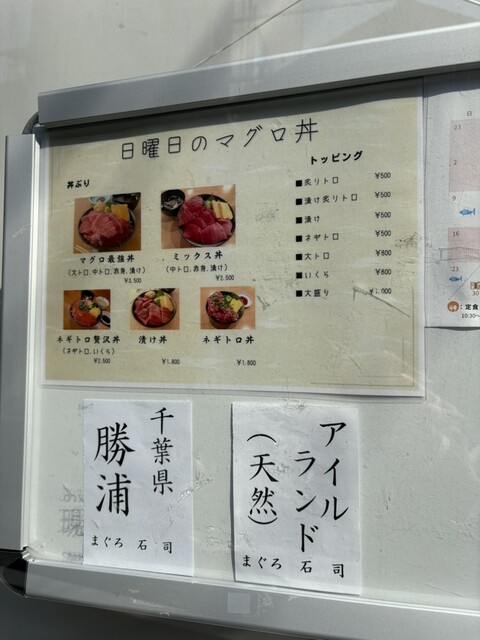 日曜日のマグロ丼
丼ぶり
マグロ最強丼
(大トロ、中トロ、赤身、漬け)
¥3,500
ミックス丼
(中トロ、赤身、漬け)
¥2,500
ネギトロ贅沢丼
(ネギトロ、いくら)
¥2,500
漬け丼
¥1,800
ネギトロ丼
¥1,800
トッピング
■炙りトロ ¥500
■漬け炙りトロ ¥500
■漬け ¥500
■ネギトロ ¥500
■大トロ ¥800
■いくら ¥800
■大盛り ¥1,000
日
2
9
16
23
30
:定食
10:30~
千葉県
勝浦
まぐろ 石司
アイルランド
(天然)
まぐろ 石司